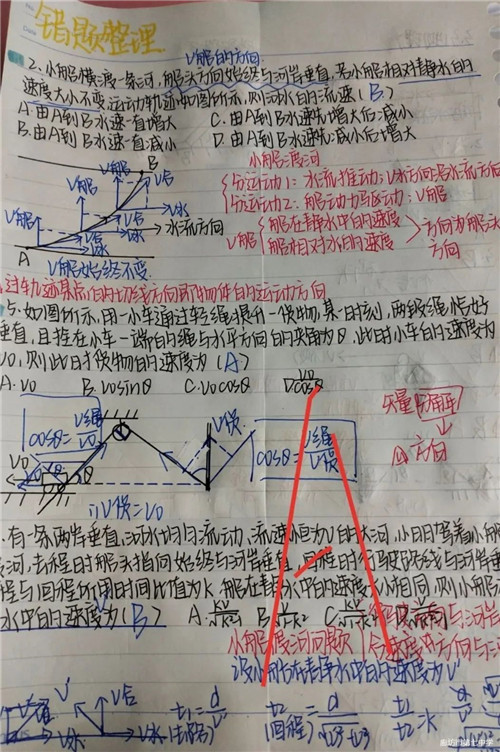 错题整理
V船的方向
2.小船横渡一条河,船头方向始终与河岸垂直,若小船相对静水的
速度大小不变,运动轨迹如图所示,则河水的流速(B)
A.由A到B水速一直增大 C.由A到B水速先增大后减小
B.由A到B水速一直减小 D.由A到B水速先减小后增大
小船渡河
分运动1:水流推动:V水方向为水流方向
分运动2:船动力驱动:V船
V船 船在静水中的速度 方向为船头
船相对水的速度 方向
B
V船 V合
V水
水流方向
A
V船始终不变
过轨迹某点的切线方向即物体的运动方向
5.如图所示,用一小车通过轻绳提升一货物,某一时刻,两段绳恰好
垂直,且拴在小车一端的绳与水平方向的夹角为θ,此时小车的速度为
v0,则此时货物的速度为(A)
A.v0 B.v0sinθ C.v0cosθ D.v0/cosθ
矢量
方向
cosθ=V绳/V0
V货
cosθ=V绳/V货
V0
θ
∴V货=V0
有一条两岸垂直,河水均匀流动、流速恒为V的大河,小明驾着小船
河,去程时船头指向始终与河岸垂直,回程时行驶路线与河岸垂
程与回程所用时间比值为k,船在静水中的速度大小相同,则小船
水中的速度为(B)
小船渡河问题
设小船在静水中的速度为V'
V' V合
V水
t1=d/V'
(去程)
t2
(回程)
t1/t2=k